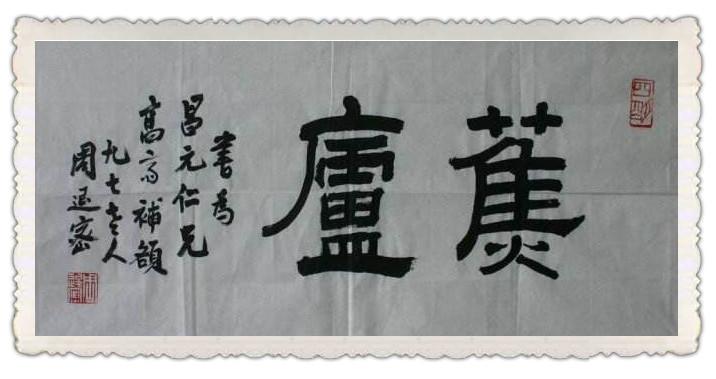 蕉廬
書為
昌元仁兄
高齋補額
九七老人
周退密
四明